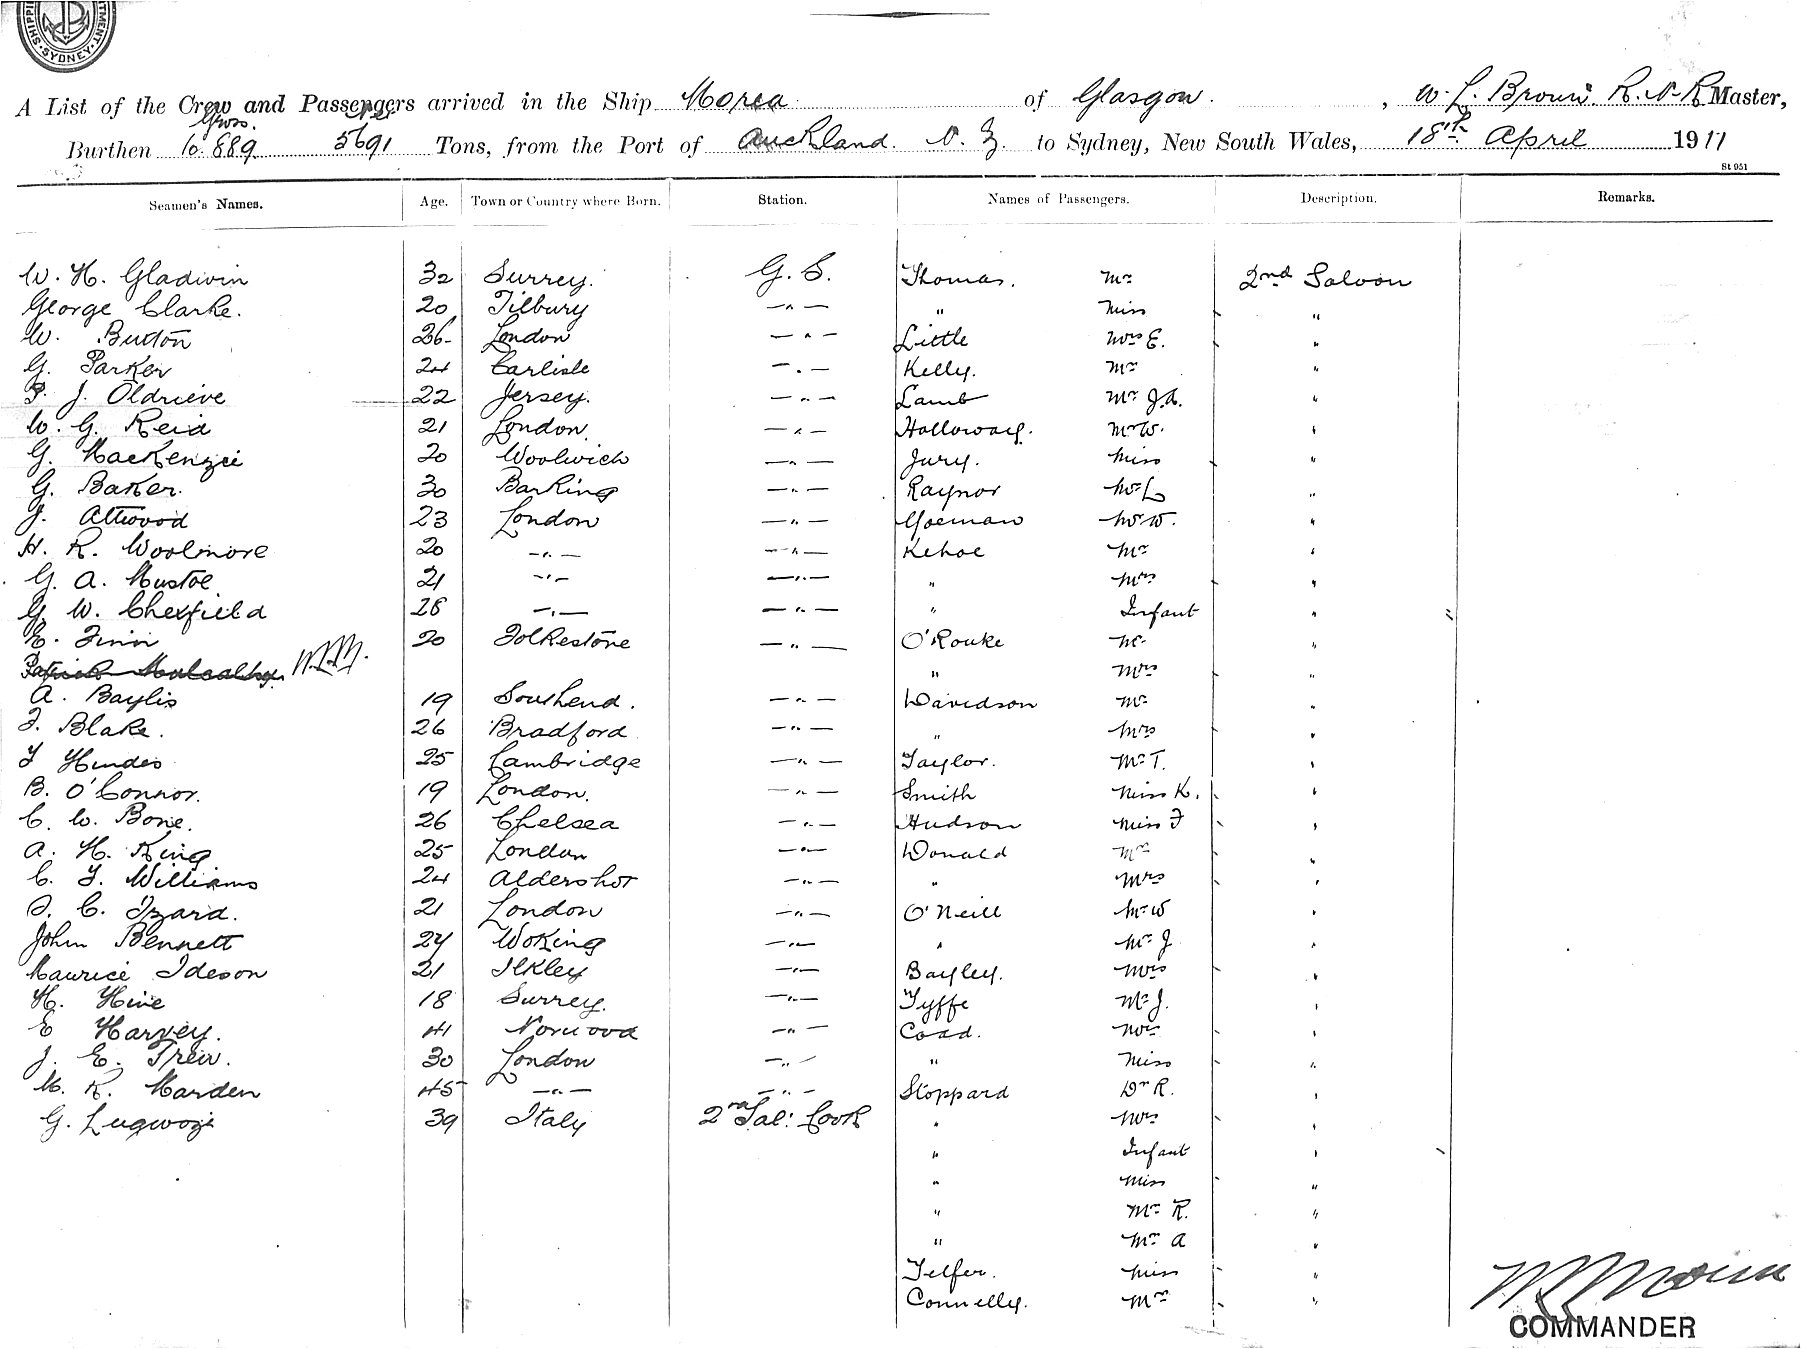 SHIPPING
SYDNEY
A List of the Crew and Passengers arrived in the Ship Morea of Glasgow. , W. L. Brown. R.N.R Master,
Gross. Net
Burthen 10.889 5691 Tons, from the Port of Auckland. N. Z. to Sydney, New South Wales, 18th April 1911
St 951
Seamen's Names. Age. Town or Country where Born. Station. Names of Passengers. Description. Remarks.
W. H. Gladwin 32 Surrey. G. S. Thomas. Mr 2nd Saloon
George Clarke. 20 Tilbury —"— " Miss "
W. Burton 26 London —"— Little Mrs E. "
G. Parker 24 Carlisle —"— Kelly. Mr "
P. J. Oldrieve 22 Jersey. —"— Lamb Mr J.A. "
W. G. Reid 21 London. —"— Holloway. Mr W. "
G. MacKenzie 20 Woolwich —"— Jury. Miss "
G. Baker. 30 Barking —"— Raynor Mr L "
J. Attwood 23 London —"— Yoeman Mr W. "
H. R. Woolmore 20 —"— —"— Kehoe Mr "
G. A. Mustoe 21 —"— —"— " Mrs "
G. W. Chexfield 28 —"— —"— " Infant "
E. Finn 20 Folkestone —"— O'Rouke Mr "
Patrick Mulcahy. " Mrs "
A. Baylis 19 Southend. —"— Davidson Mr "
F. Blake. 26 Bradford —"— " Mrs "
F Hindes 25 Cambridge —"— Taylor. Mr T. "
B. O'Connor. 19 London. —"— Smith Miss K. "
C. W. Bone. 26 Chelsea —"— Hudson Miss F "
A. H. King 25 London —"— Donald Mr "
C. F. Williams 24 Aldershot —"— " Mrs "
C. Izard. 21 London —"— O'Neill Mr W "
John Bennett 24 Woking —"— " Mr J "
Maurice Ideson 21 Ilkley —"— Bayley. Mrs "
H. Hine 18 Surrey. —"— Fyffe Mr J. "
E Harvey. 41 Norwood —"— Coad. Mrs "
J. E. Trew. 30 London —"— " Miss "
M. R. Marden 45 —"— —"— Stoppard Dr R. "
G. 39 Italy 2nd Sal: Cook " Mrs "
" Infant "
" Miss "
" Mr R. "
" Mr A "
Telfer. Miss "
Connelly. Mr "
COMMANDER